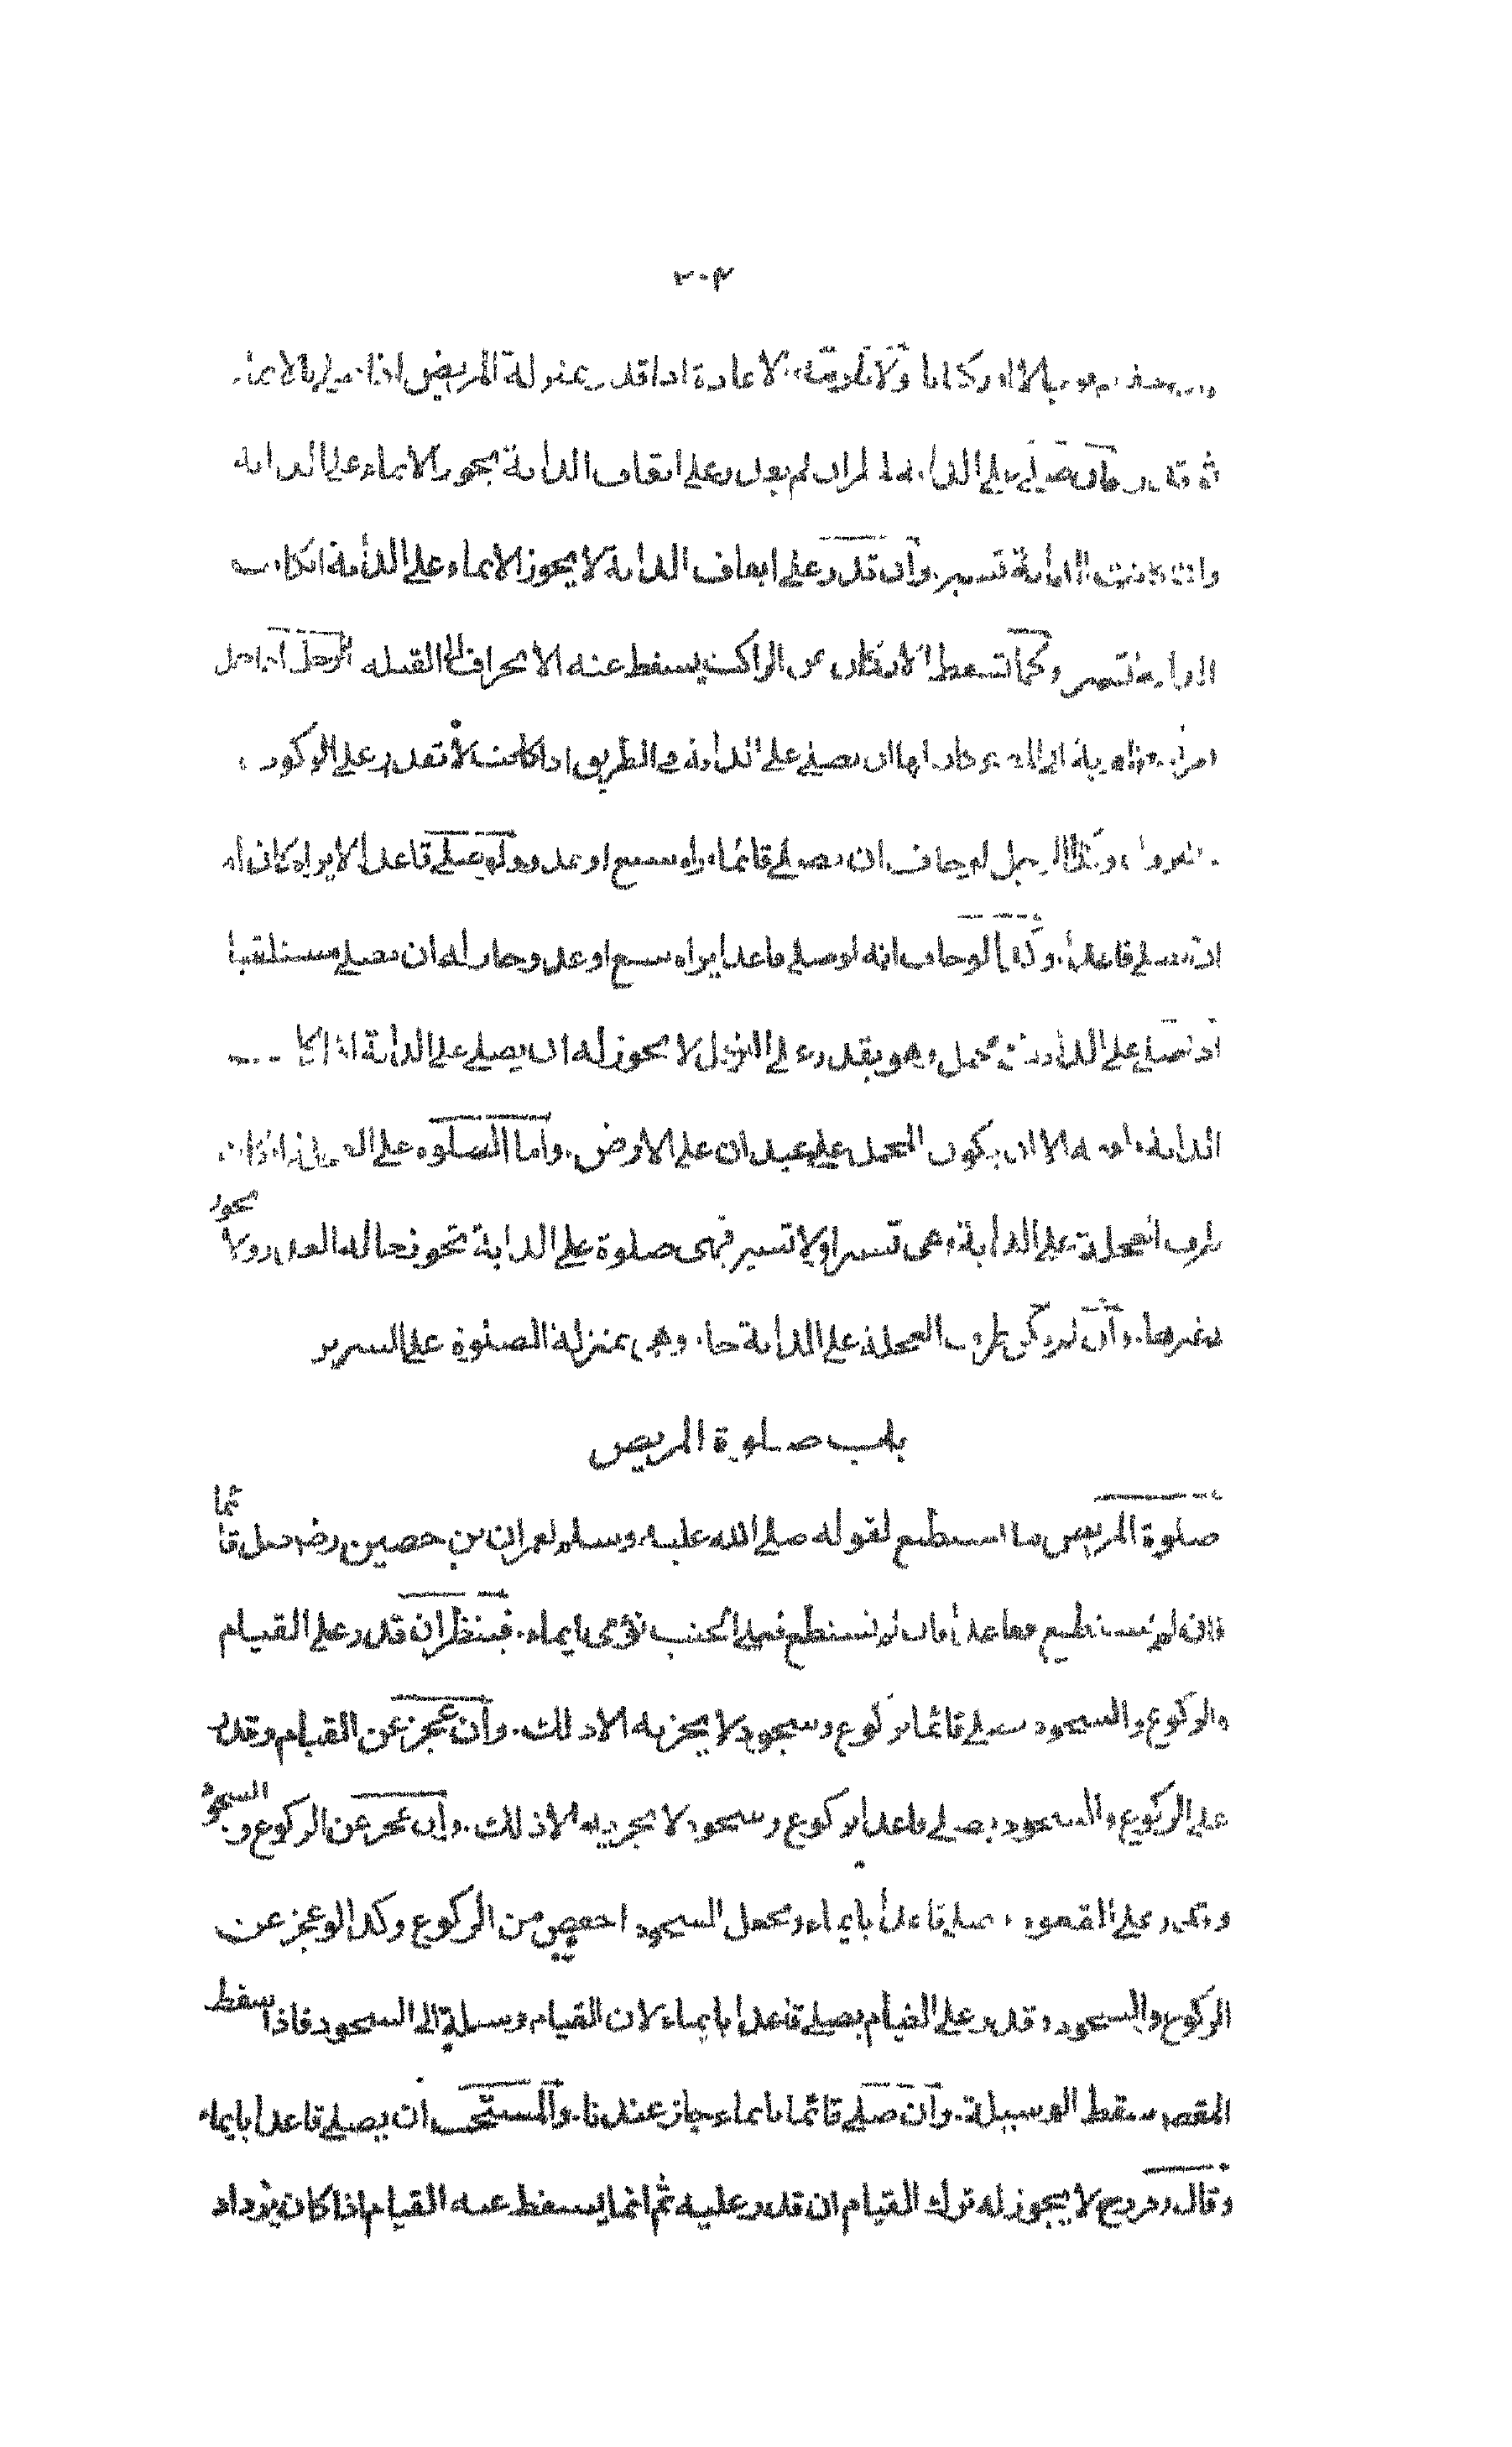 ٢٠٣
ولا تلزمه الاعادة اذا قدر بمنزلة المريض اذا صلى بالايماء
ثم قدر فان صلى على الدابة ان لم يقدر على ايقاف الدابة يجوز الايماء على الدابة
وان كانت الدابة تسير. وان قدر على ايقاف الدابة لا يجوز الايماء على الدابة اذا كانت
الدابة تسير وكما تسقط الاركان عن الراكب يسقط عنه الانحراف الى القبلة الرجل اذا حمل
امرأته من القرية الى المصر كان لها ان تصلى على الدابة فى الطريق اذا كانت لا تقدر على الركوب
والنزول وكذا الرجل لو خاف ان يصلى قائما يراه سبع او عدو ولو صلى قاعدا لا يراه كان له
ان يصلى قاعدا. وكذا لو خاف انه لو صلى قاعدا يراه سبع او عدو جاز له ان يصلى مستلقيا
اذا صلى على الدابة فى محمل وهو يقدر على النزول لا يجوز له ان يصلى على الدابة اذا كانت
الدابة واقفة الا ان يكون المحمل على عيدان على الارض. واما الصلوة على العجلة اذا كان
طرف العجلة على الدابة وهى تسير او لا تسير فهى صلوة على الدابة تجوز فى حالة العذر ولا يجوز
فى غيرها. وان لم يكن طرف العجلة على الدابة جاز. وهى بمنزلة الصلوة على السرير
باب صلوة المريض
صلوة المريض ما استطيع لقوله صلى الله عليه وسلم لعمران بن حصين رض صل قائما
فان لم تستطع فقاعدا فان لم تستطع فعلى الجنب تؤمى ايماء. فينظر ان قدر على القيام
والركوع والسجود يصلى قائما بركوع وسجود لا يجزيه الا ذلك. وان عجز عن القيام وقدر
على الركوع والسجود يصلى قاعدا بركوع وسجود لا يجزيه الا ذلك. وان عجز عن الركوع والسجود
وقدر على القعود يصلى قاعدا بايماء ويجعل السجود اخفض من الركوع وكذا لو عجز عن
الركوع والسجود وقدر على القيام يصلى قاعدا بايماء لان القيام وسيلة الى السجود فاذا سقط
المقصد سقط الوسيلة. وان صلى قائما بايماء جاز عندنا. والمستحب ان يصلى قاعدا بايماء
وقال زفر رح لا يجوز له ترك القيام ان قدر عليه ثم انما يسقط عنه القيام اذا كان يزداد